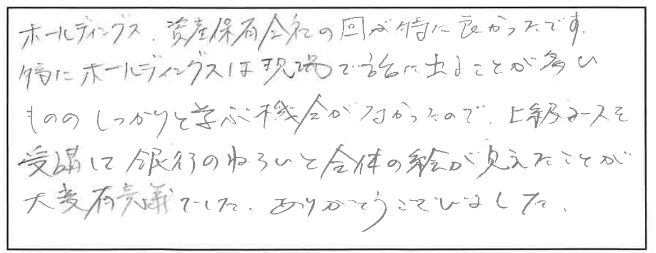 ホールディングス、資産保有会社の回が特に良かったです。
特にホールディングスは現場で話に出ることが多い
もののしっかりと学ぶ機会がなかったので、上級コースを
受講して銀行のねらいと全体の絵が見えたことが
大変有意義でした。ありがとうございました。